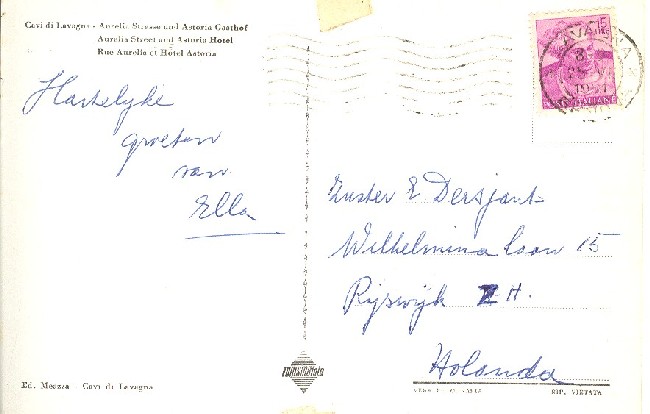 Cavi di Lavagna - Aurelia Strasse und Astoria Gasthof
Aurelia Street and Astoria Hotel
Rue Aurelia et Hôtel Astoria
Hartelyke
groeten
van
Ella
15
LAVAGNA
ITALIANE
Zuster E Dersjant
Wilhelmina laan 15
Ryswyk Z H.
Holanda
Ed. Meazza - Cavi di Lavagna
RIP. VIETATA